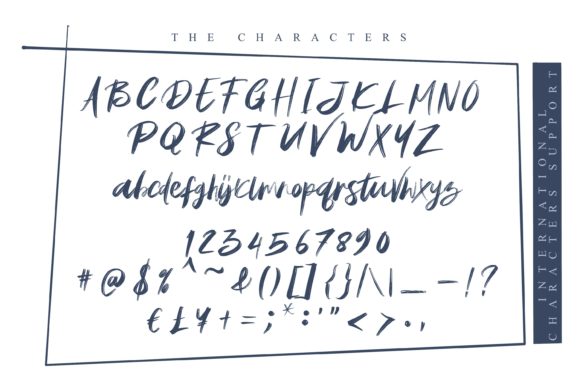 THE CHARACTERS
ABCDEFGHIJKLMNO
PQRSTUVWXYZ
abcdefghijklmnopqrstuvwxyz
1234567890
#@$%^~&()[]{}/\|_-!?
€£¥+=;*:'"<>.,
INTERNATIONAL
CHARACTERS SUPPORT